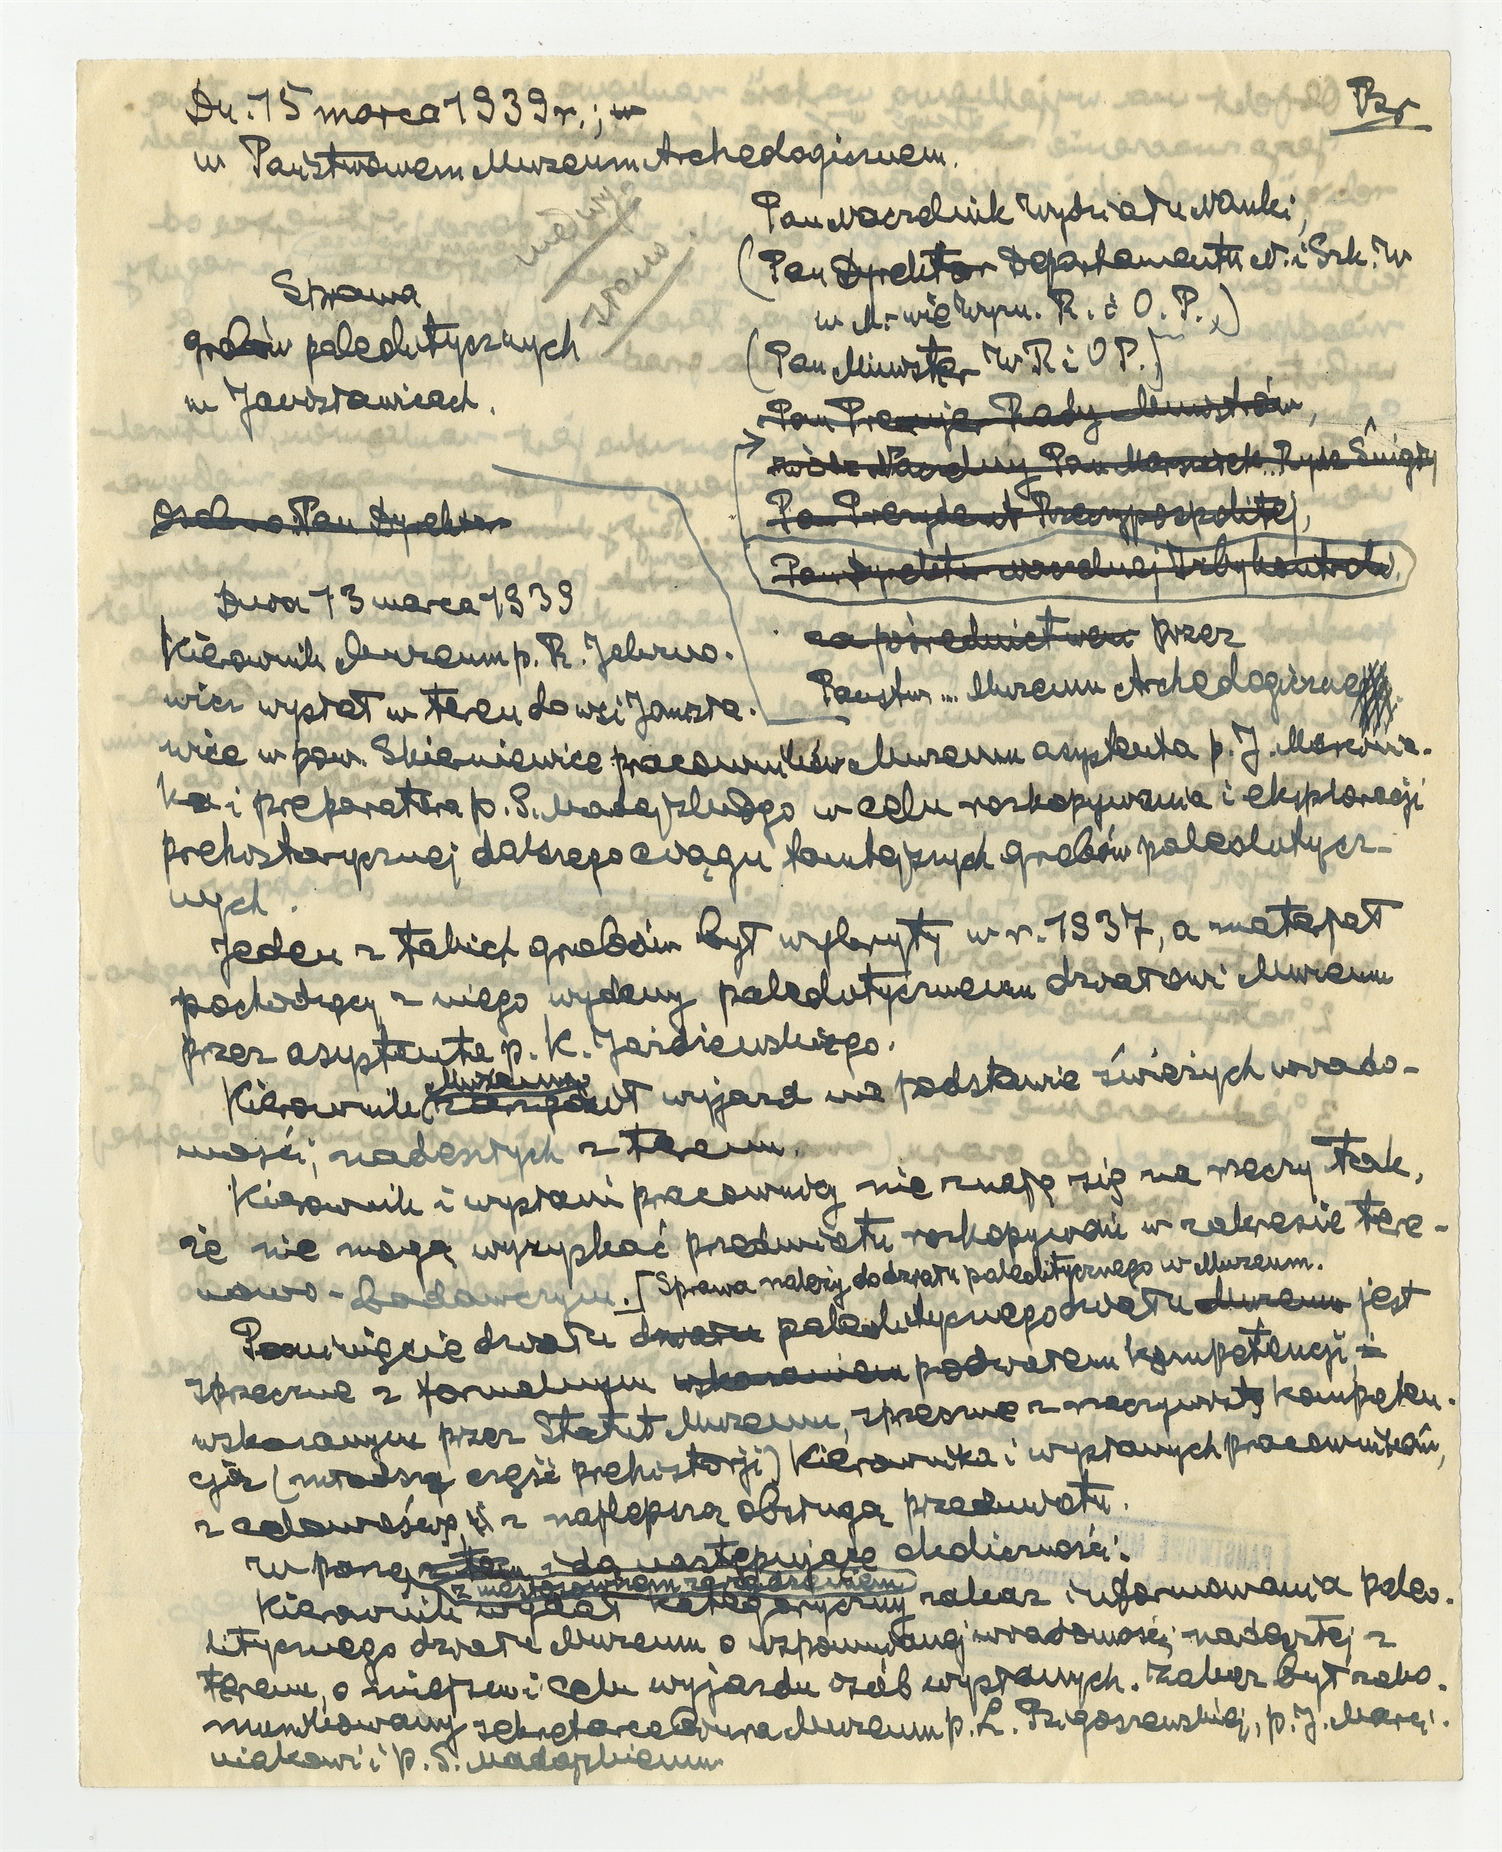 Dn. 15 marca 1939 r.; w
w Państwowem Muzeum Archeologicznem.
Pan Naczelnik Wydziału Nauki,
(Pan Dyrektor Departamentu N. i Szk. W
w M-wie Wyzn. R. i O. P.,)
(Pan Minister W R i O P.,)
Pan Premjer Rady Ministrów,
Wódz Naczelny Pan Marszałek Rydz Śmigły
Pan Prezydent Rzeczypospolitej,
Pan Dyrektor naczelnej Izby kontroli,
za pośrednictwem przez
Państw... Muzeum Archeologiczne
Sprawa
grobów paleolitycznych
w Janisławicach.
Pan Dyrektor
Dnia 13 marca 1939
Kierownik Muzeum p. R. Jakimo-
wicz wysłał w teren do wsi Janisła-
wice w pow. Skierniewice pracowników Muzeum asystenta p. J. Marcinia-
ka i preparatora p. S. Madajskiego w celu rozkopywania i eksploracji
prehistorycznej dalszego ciągu tamtejszych grobów paleolitycz-
nych.
Jeden z takich grobów był wykryty w r. 1937, a materjał
pochodzący z niego wydany paleolitycznemu działowi Muzeum
przez asystenta p. K. Jażdżewskiego.
Kierownik Muzeum zarządził wyjazd na podstawie świeżych wiado-
mości, nadesłanych z terenu.
Kierownik i wysłani pracownicy nie znają się na rzeczy tak,
że nie mogą wyzyskać przedmiotu rozkopywań w zakresie tere-
nowo-badawczym. [Sprawa należy do działu paleolitycznego w Muzeum.
Pominięcie działu działu paleolitycznego działu Muzeum jest
sprzeczne z formalnym wskazaniem podziałem kompetencji, i
wskazanym przez Statut Muzeum, sprzeczne z rzeczywistą kompeten-
cją (młodszą część prehistorji) Kierownika i wysłanych pracowników,
z celowością, i z najlepszą obsługą przedmiotu.
W porę z tem idą następujące okoliczności:
z następującem zarządzeniem
Kierownik wydał kategoryczny zakaz informowania paleo-
litycznego działu Muzeum o wspomnianej wiadomości nadeszłej z
terenu, o miejscu i celu wyjazdu osób wysłanych. Zakaz był zako-
munikowany sekretarce biura Muzeum p. L. Rzgoszewskiej, p. J. Marci-
niakowi i p. S. Madajskiemu